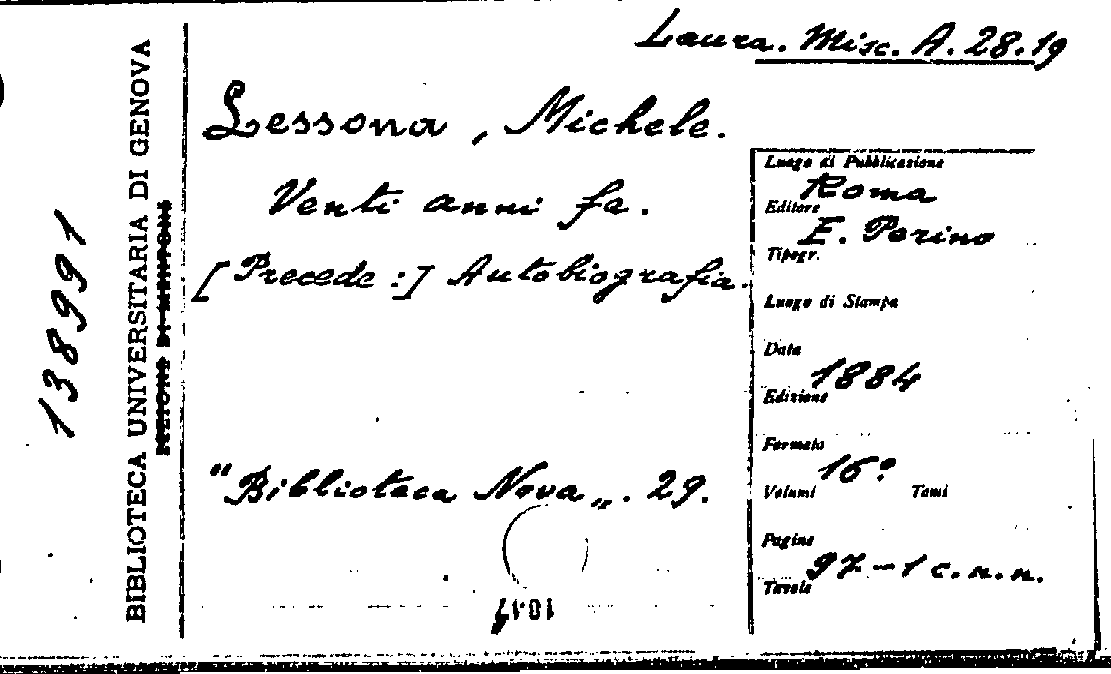 Laura. Misc. A. 28.19
13891
BIBLIOTECA UNIVERSITARIA DI GENOVA
Lessona, Michele.
Venti anni fa.
[Precede:] Autobiografia.
"Biblioteca Nova„. 29.
Luogo di Pubblicazione
Roma
Editore
E. Perino
Tipogr.
Luogo di Stampa
Data
1884
Edizione
Formato
16°
Volumi Tomi
Pagine
97-1 c.n.n.
Tavole